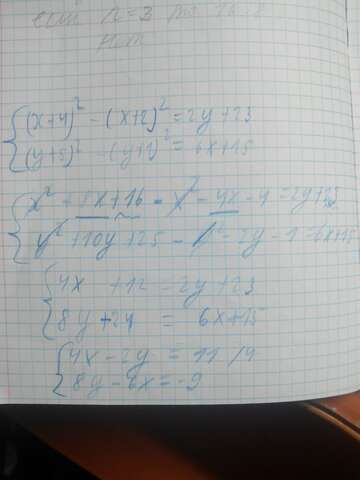 если n=3
Нет
(x+4)² - (x+2)² = 2y+23
(y+5)² - (y+1)² = 6x+15
x² + 8x + 16 - x² - 4x - 4 = 2y+23
y² + 10y + 25 - y² - 2y - 1 = 6x+15
4x + 12 = 2y + 23
8y + 24 = 6x+15
4x - 2y = 11 /4
8y - 6x = -9